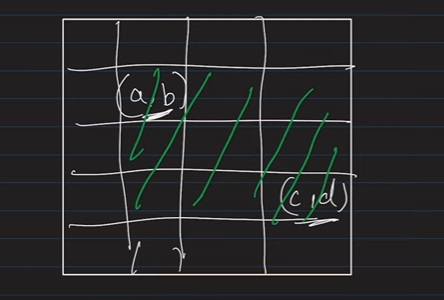 (a, b)
(c, d)
( )